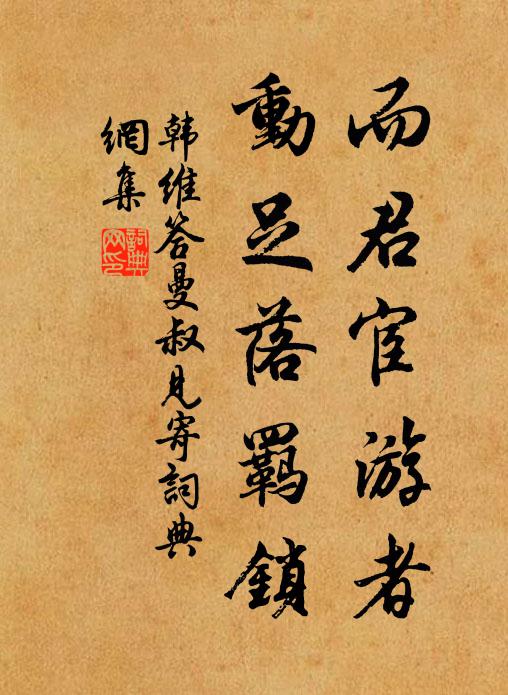 而君宦游者
動足落羁鎖
韩維答曼叔見寄詞典
網集
詞典
网印